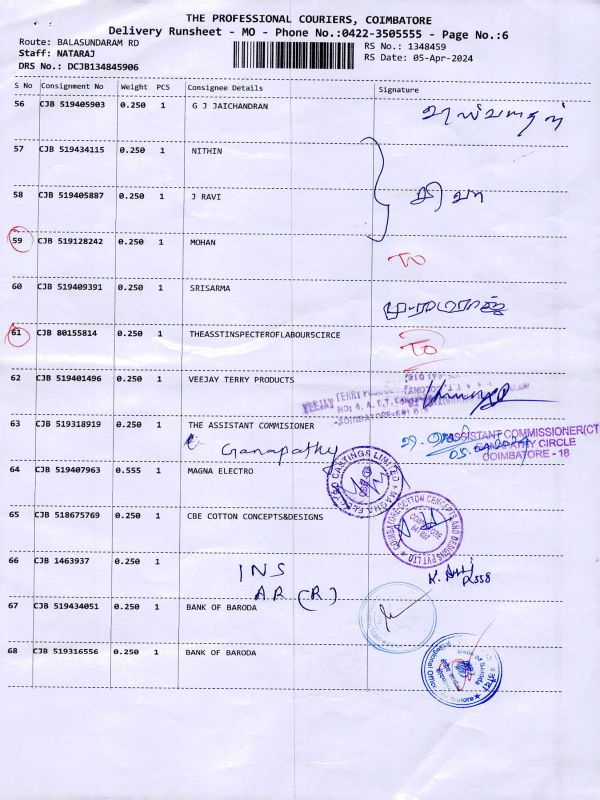 THE PROFESSIONAL COURIERS, COIMBATORE
Delivery Runsheet - MO - Phone No.:0422-3505555 - Page No.:6
Route: BALASUNDARAM RD
RS No.: 1348459
Staff: NATARAJ
RS Date: 05-Apr-2024
DRS No.: DCJB134845906
S No Consignment No Weight PCS Consignee Details Signature
56 CJB 519405903 0.250 1 G J JAICHANDRAN
57 CJB 519434115 0.250 1 NITHIN
58 CJB 519405887 0.250 1 J RAVI
59 CJB 519128242 0.250 1 MOHAN TO
60 CJB 519409391 0.250 1 SRISARMA
61 CJB 80155814 0.250 1 THEASSTINSPECTEROFLABOUR5CIRCE TO
62 CJB 519401496 0.250 1 VEEJAY TERRY PRODUCTS
63 CJB 519318919 0.250 1 THE ASSISTANT COMMISIONER
ASSISTANT COMMISSIONER(CT
Ganapathy
CIRCLE
COIMBATORE - 18
64 CJB 519407963 0.555 1 MAGNA ELECTRO
65 CJB 518675769 0.250 1 CBE COTTON CONCEPTS&DESIGNS
COIMBATORE-COTTON CONCEPTS AND DESIGNS PVT LTD
66 CJB 1463937 0.250 1 INS
AR (R)
67 CJB 519434051 0.250 1 BANK OF BARODA
68 CJB 519316556 0.250 1 BANK OF BARODA